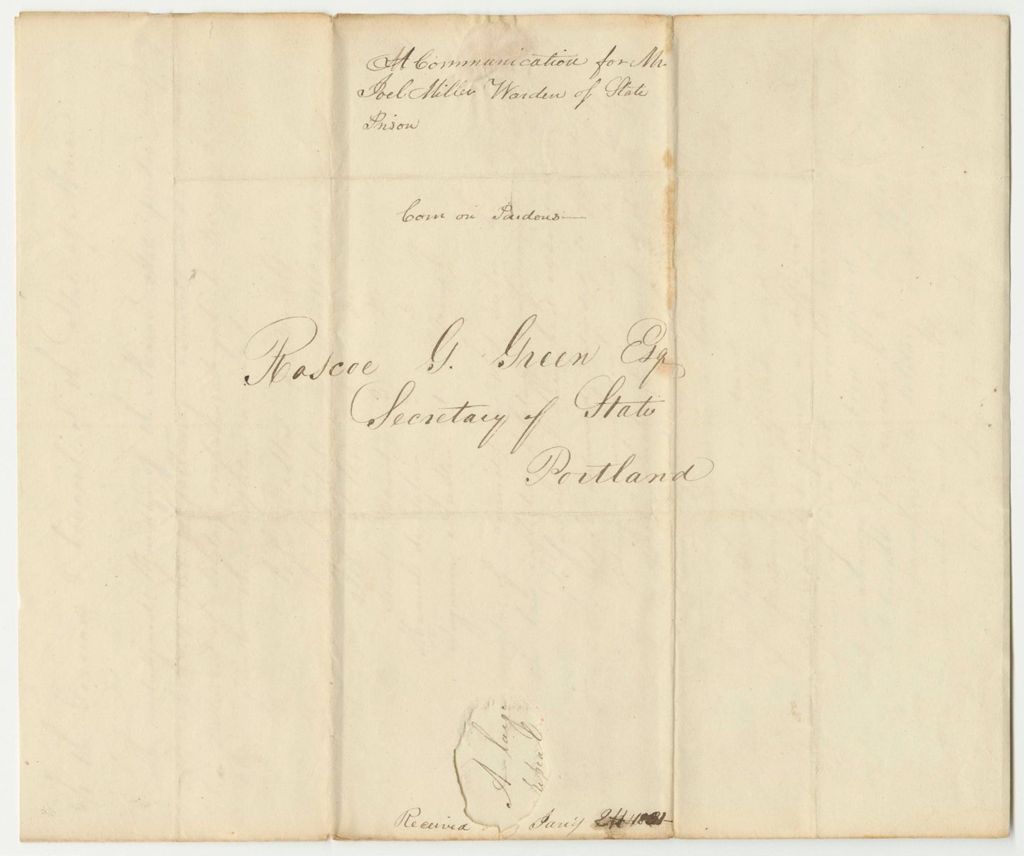 A Communication for Mr
Joel Miller Warden of State
Prison
Com on Pardons
Roscoe G. Green Esq
Secretary of State
Portland
A
Received Jan'y 24